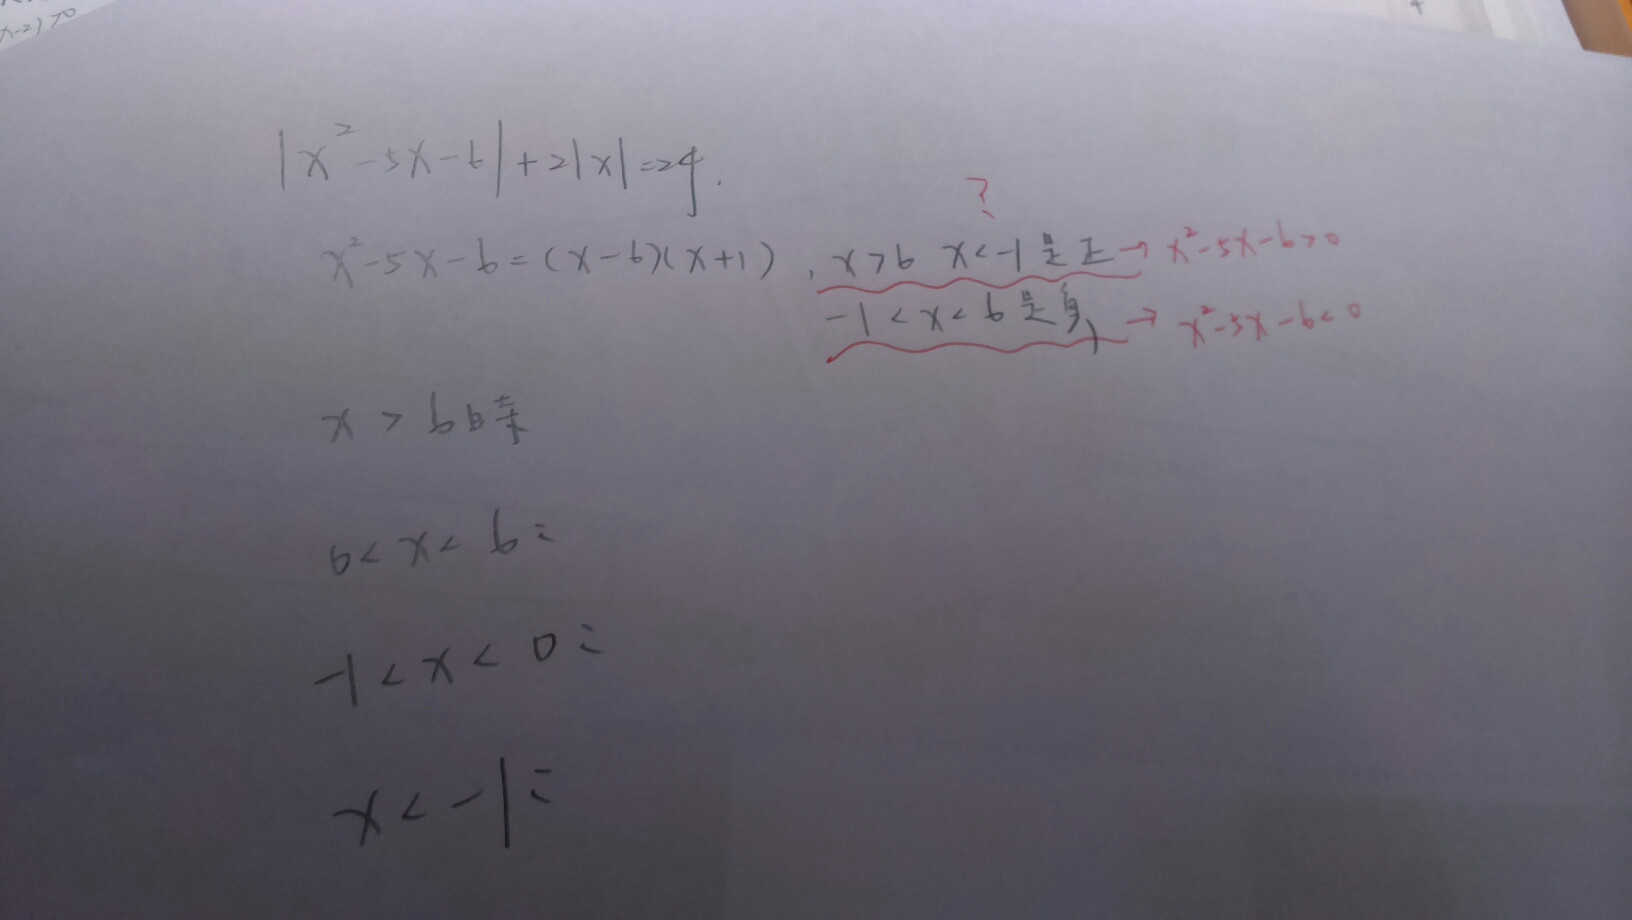 x-2)>0
|x²-5x-6|+2|x|=24.
?
x²-5x-6=(x-6)(x+1), x>6 x<-1 是正→x²-5x-6>0
-1<x<6 是負, →x²-5x-6<0
x>6時
0<x<6:
-1<x<0:
x<-1: